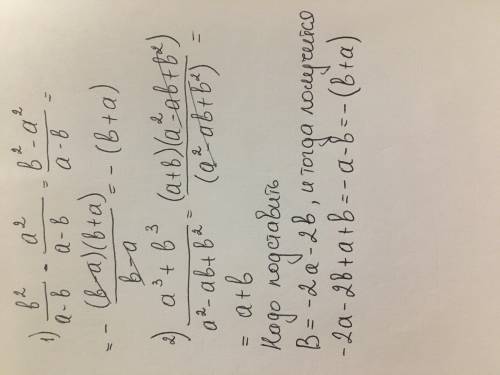 1) b²/(a-b) - a²/(a-b) = (b²-a²)/(a-b) =
= - (b-a)(b+a)/(b-a) = - (b+a)
2) (a³+b³)/(a²-ab+b²) = (a+b)(a²-ab+b²)/(a²-ab+b²) =
= a+b
Надо подставить
B = -2a-2b, и тогда получится
-2a-2b+a+b = -a-b = -(b+a)